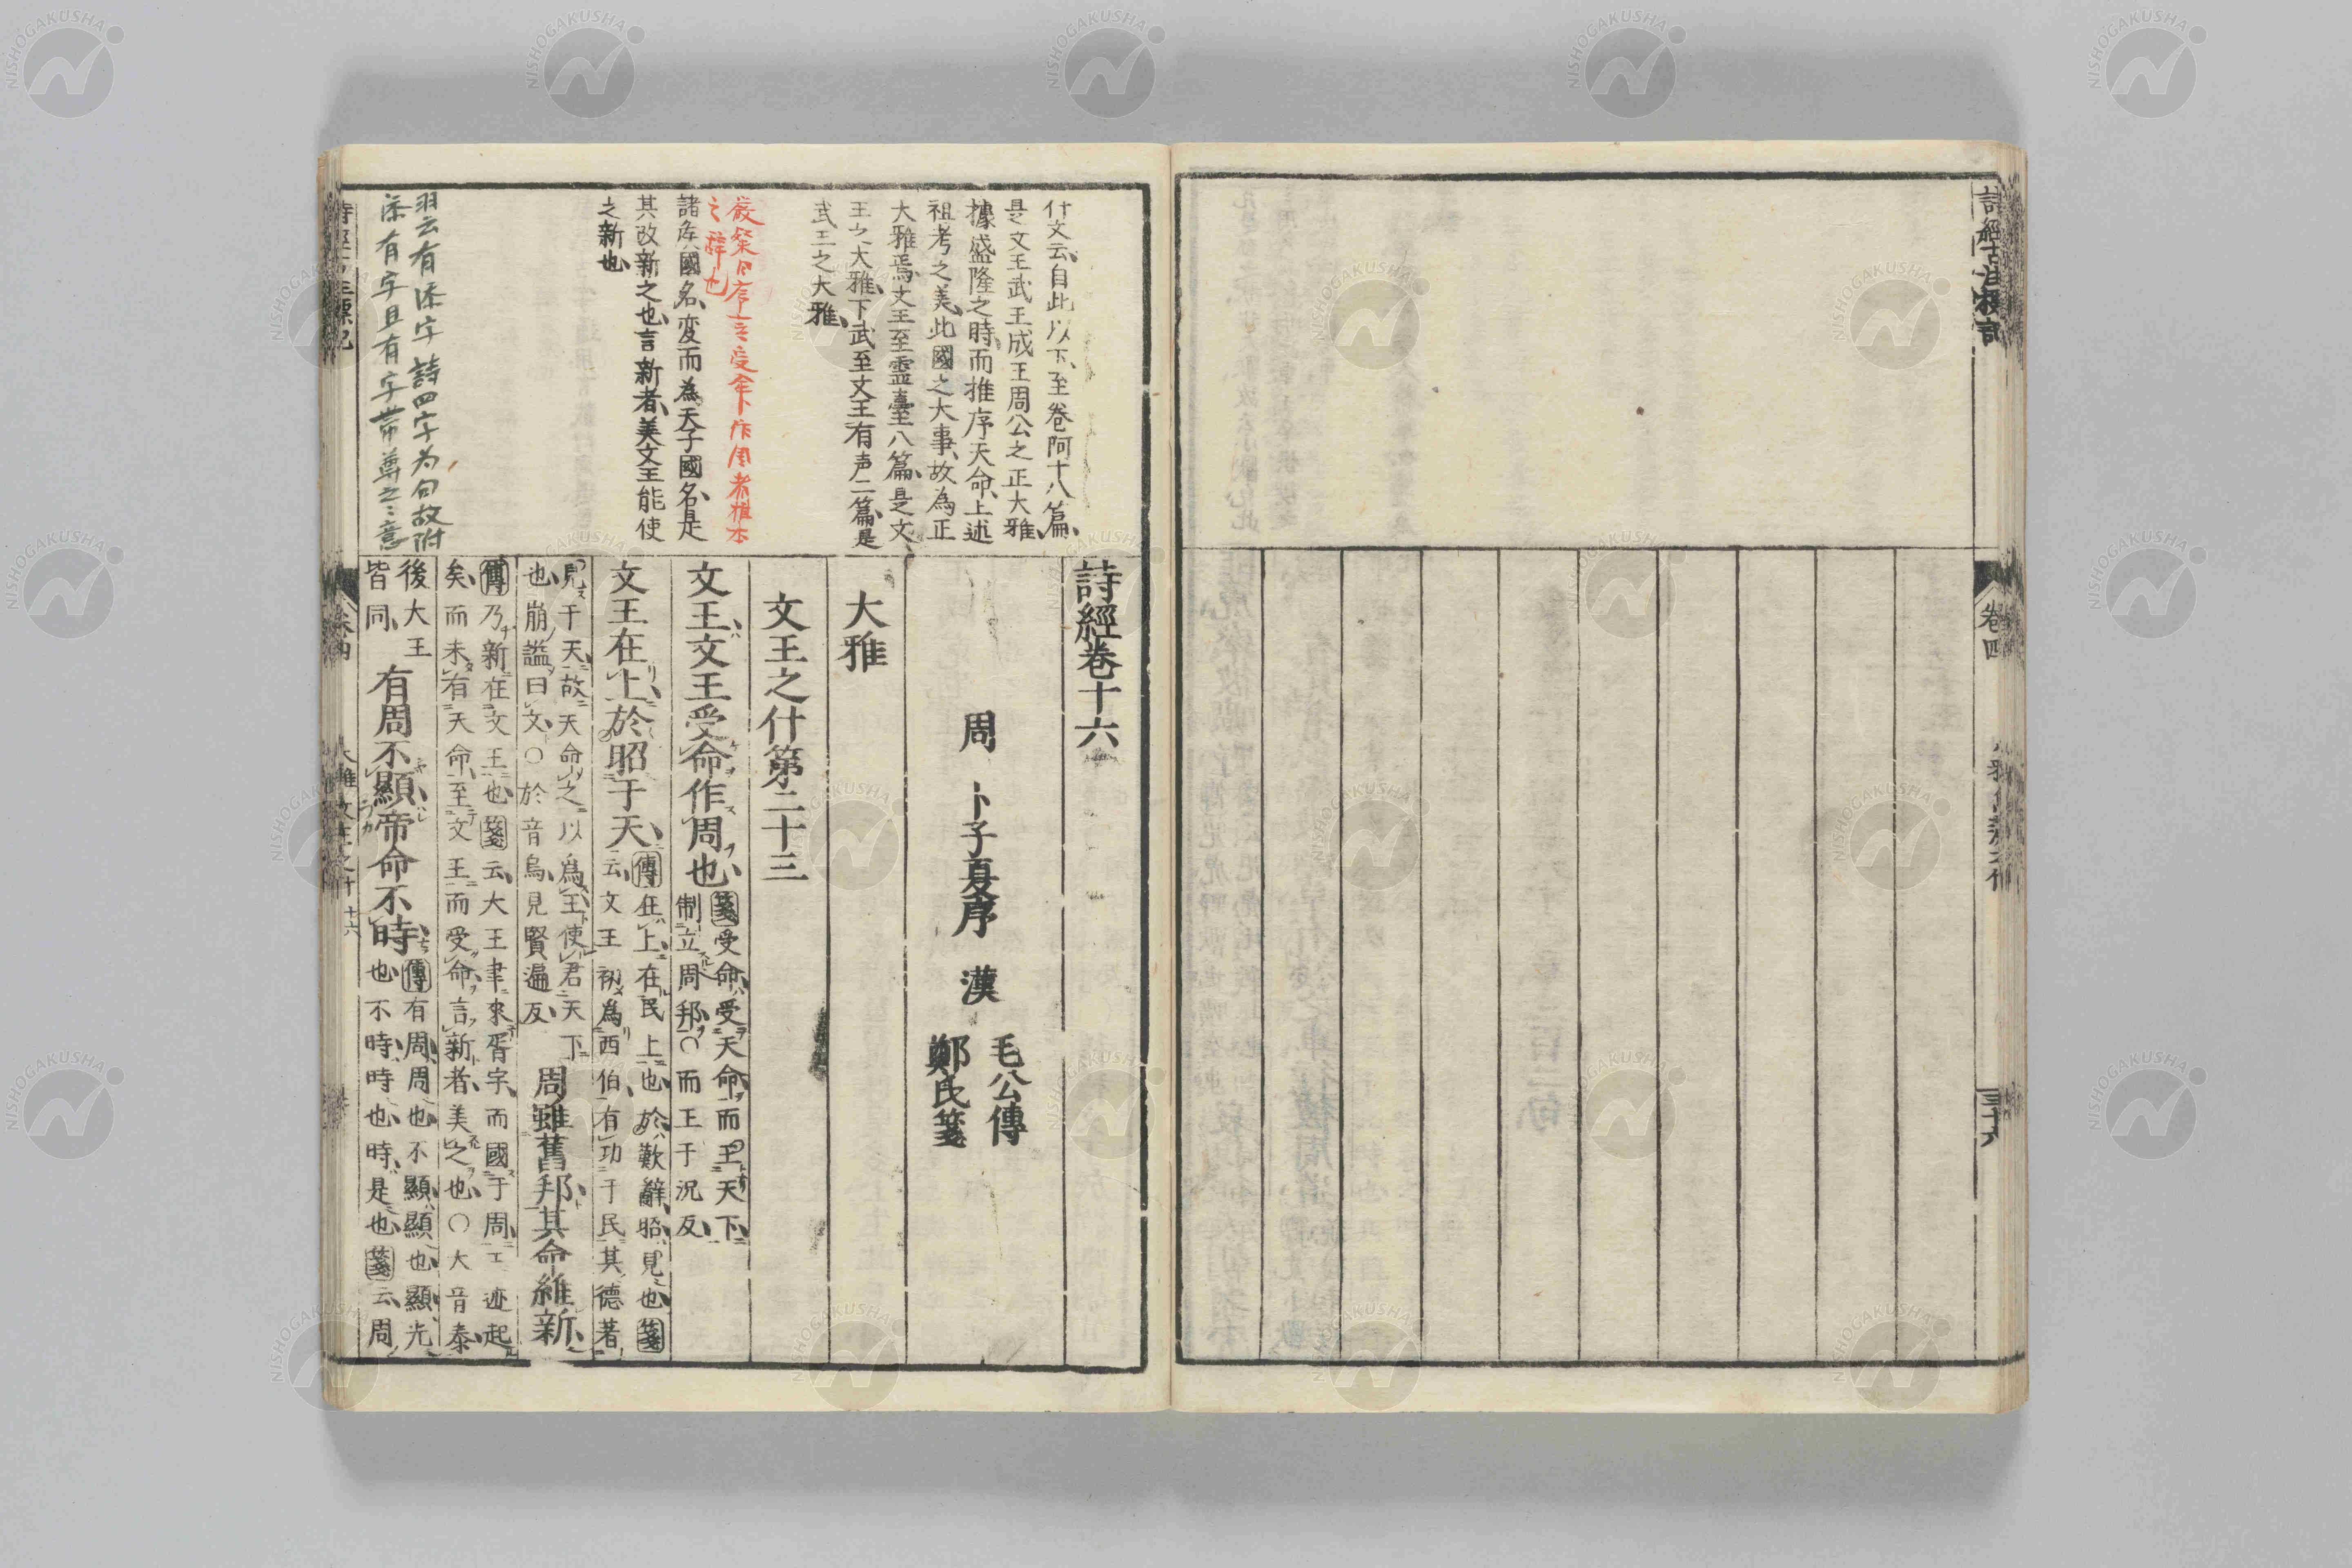 詩經古注標記
卷四
三十六
什文云、自此以下、至卷阿十八篇、
是文王武王成王周公之正大雅、
據盛隆之時、而推序天命、上述
祖考之美、此國之大事、故為正
大雅焉、文王至靈臺八篇、是文
王之大雅、下武至文王有声二篇、是
武王之大雅、
嚴粲曰序言受命作周者推本
之辭也
諸侯國名、変而為天子國名、是
其改新之也、言新者、美文王能使
之新也、
有添字詩四字为句故附
添有字且有字帶尊之之意
詩經卷十六
周 卜子夏序 漢 毛公傳
鄭氏箋
大雅
文王之什第二十三
文王、文王受命作周也、箋受命、受天命、而王天下、
制立周邦、〇而王于況反、
文王在上、於昭于天、傳在上、在民上也、於歎辭、昭、見也、箋
云、文王初爲西伯、有功于民、其德著
見于天、故天命之、以爲王、使君天下
也、崩謚曰文、〇於音烏、見賢遍反、 周雖舊邦、其命維新、
傳乃新在文王也、箋云、大王聿來胥宇、而國于周、王迹起
矣、而未有天命、至文王而受命、言新者、美之也、〇大音泰、
後大王
皆同、 有周不顯、帝命不時、傳有周、周也、不顯、顯也、顯、光
也、不時、時也、時、是也、箋云、周